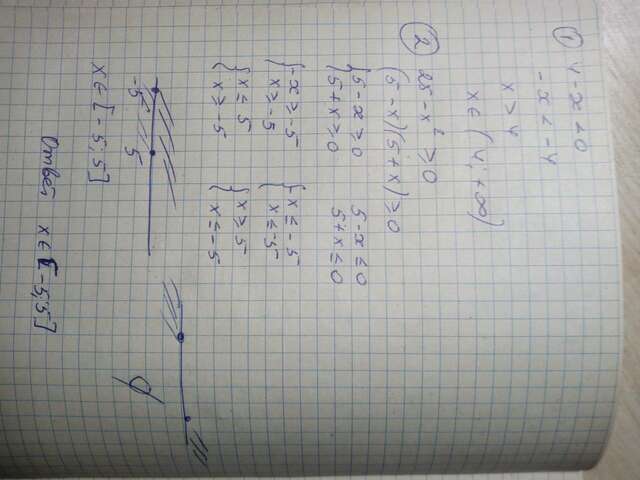 ① 4 - x < 0
- x < - 4
x > 4
x ∈ (4; +∞)
② 25 - x² ≥ 0
(5 - x)(5 + x) ≥ 0
{5 - x ≥ 0 5 - x ≤ 0
{5 + x ≥ 0 5 + x ≤ 0
{-x ≥ -5 {-x ≤ -5
{x ≥ -5 {x ≤ -5
{x ≤ 5 {x ≥ 5
{x ≥ -5 {x ≤ -5
-5 5
∅
x ∈ [-5; 5]
Ответ x ∈ [-5; 5]